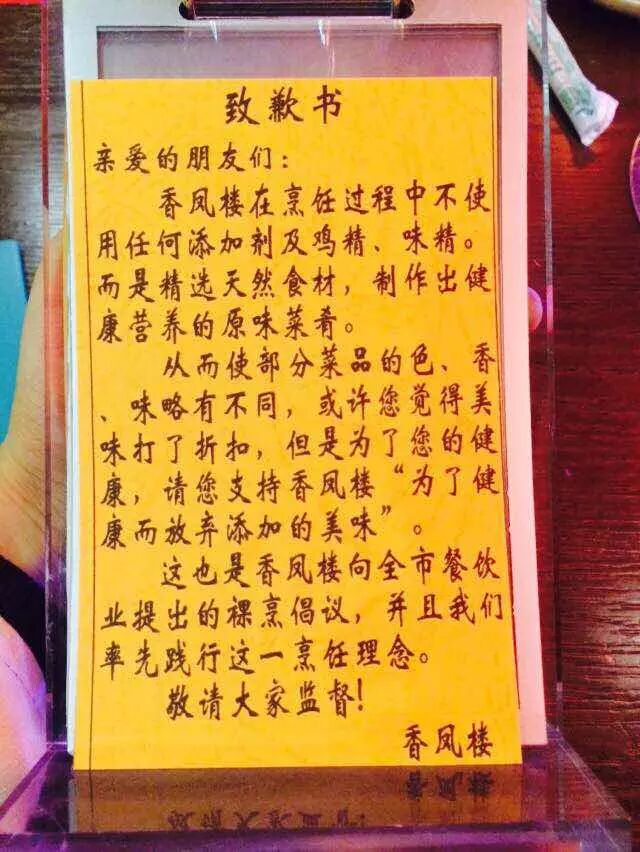 致歉书
亲爱的朋友们：
香凤楼在烹饪过程中不使
用任何添加剂及鸡精、味精。
而是精选天然食材，制作出健
康营养的原味菜肴。
从而使部分菜品的色、香
、味略有不同，或许您觉得美
味打了折扣，但是为了您的健
康，请您支持香凤楼“为了健
康而放弃添加的美味”。
这也是香凤楼向全市餐饮
业提出的裸烹倡议，并且我们
率先践行这一烹饪理念。
敬请大家监督！
香凤楼